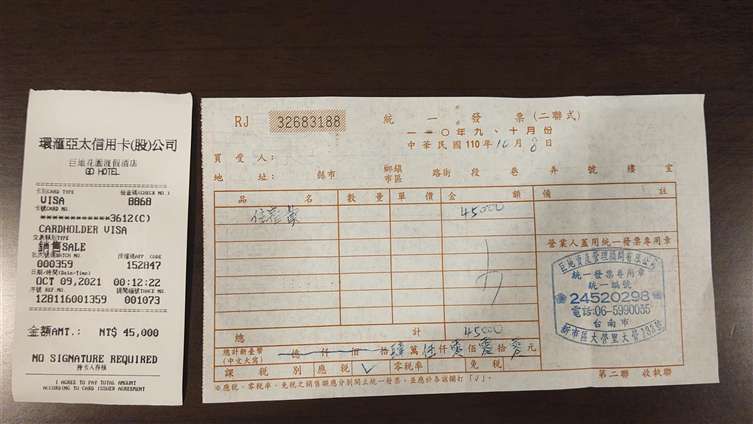 環滙亞太信用卡(股)公司
巨地花園渡假酒店
GD HOTEL
卡別CARD TYPE 檢查碼(CHECK NO.)
VISA 8868
卡號(CARD NO.)
************3612(C)
CARDHOLDER VISA
交易類別TYPE
銷售SALE
批次號碼BATCH NO. 授權碼APP CODE
000359 152847
日期/時間(Date/Time)
OCT 09,2021 00:12:22
序號 REF NO. 調閱編號TRACE NO.
128116001359 001073
金額AMT.: NT$ 45,000
NO SIGNATURE REQUIRED
持卡人存根
I AGREE TO PAY TOTAL AMOUNT
ACCORDING TO CARD ISSUER AGREEMENT
RJ 32683188 統一發票(二聯式)
一一〇年九、十月份
中華民國110年10月8日
買受人:
地址: 縣市 鄉鎮市區 路街 段 巷 弄 號 樓 室
品名 數量 單價 金額 備註
住宿費 45000
營業人蓋用統一發票專用章
統一發票專用章
統一編號
24520298
電話:06-5990055
台南市
總計 45000
總計新臺幣
(中文大寫) 億 仟 佰 拾 肆萬 伍仟 零佰 零拾 零元
課稅別 應稅 ✓ 零稅率 免稅
第二聯 收執聯
※應稅、零稅率、免稅之銷售額應分別開立統一發票,並應於各該欄打「√」。